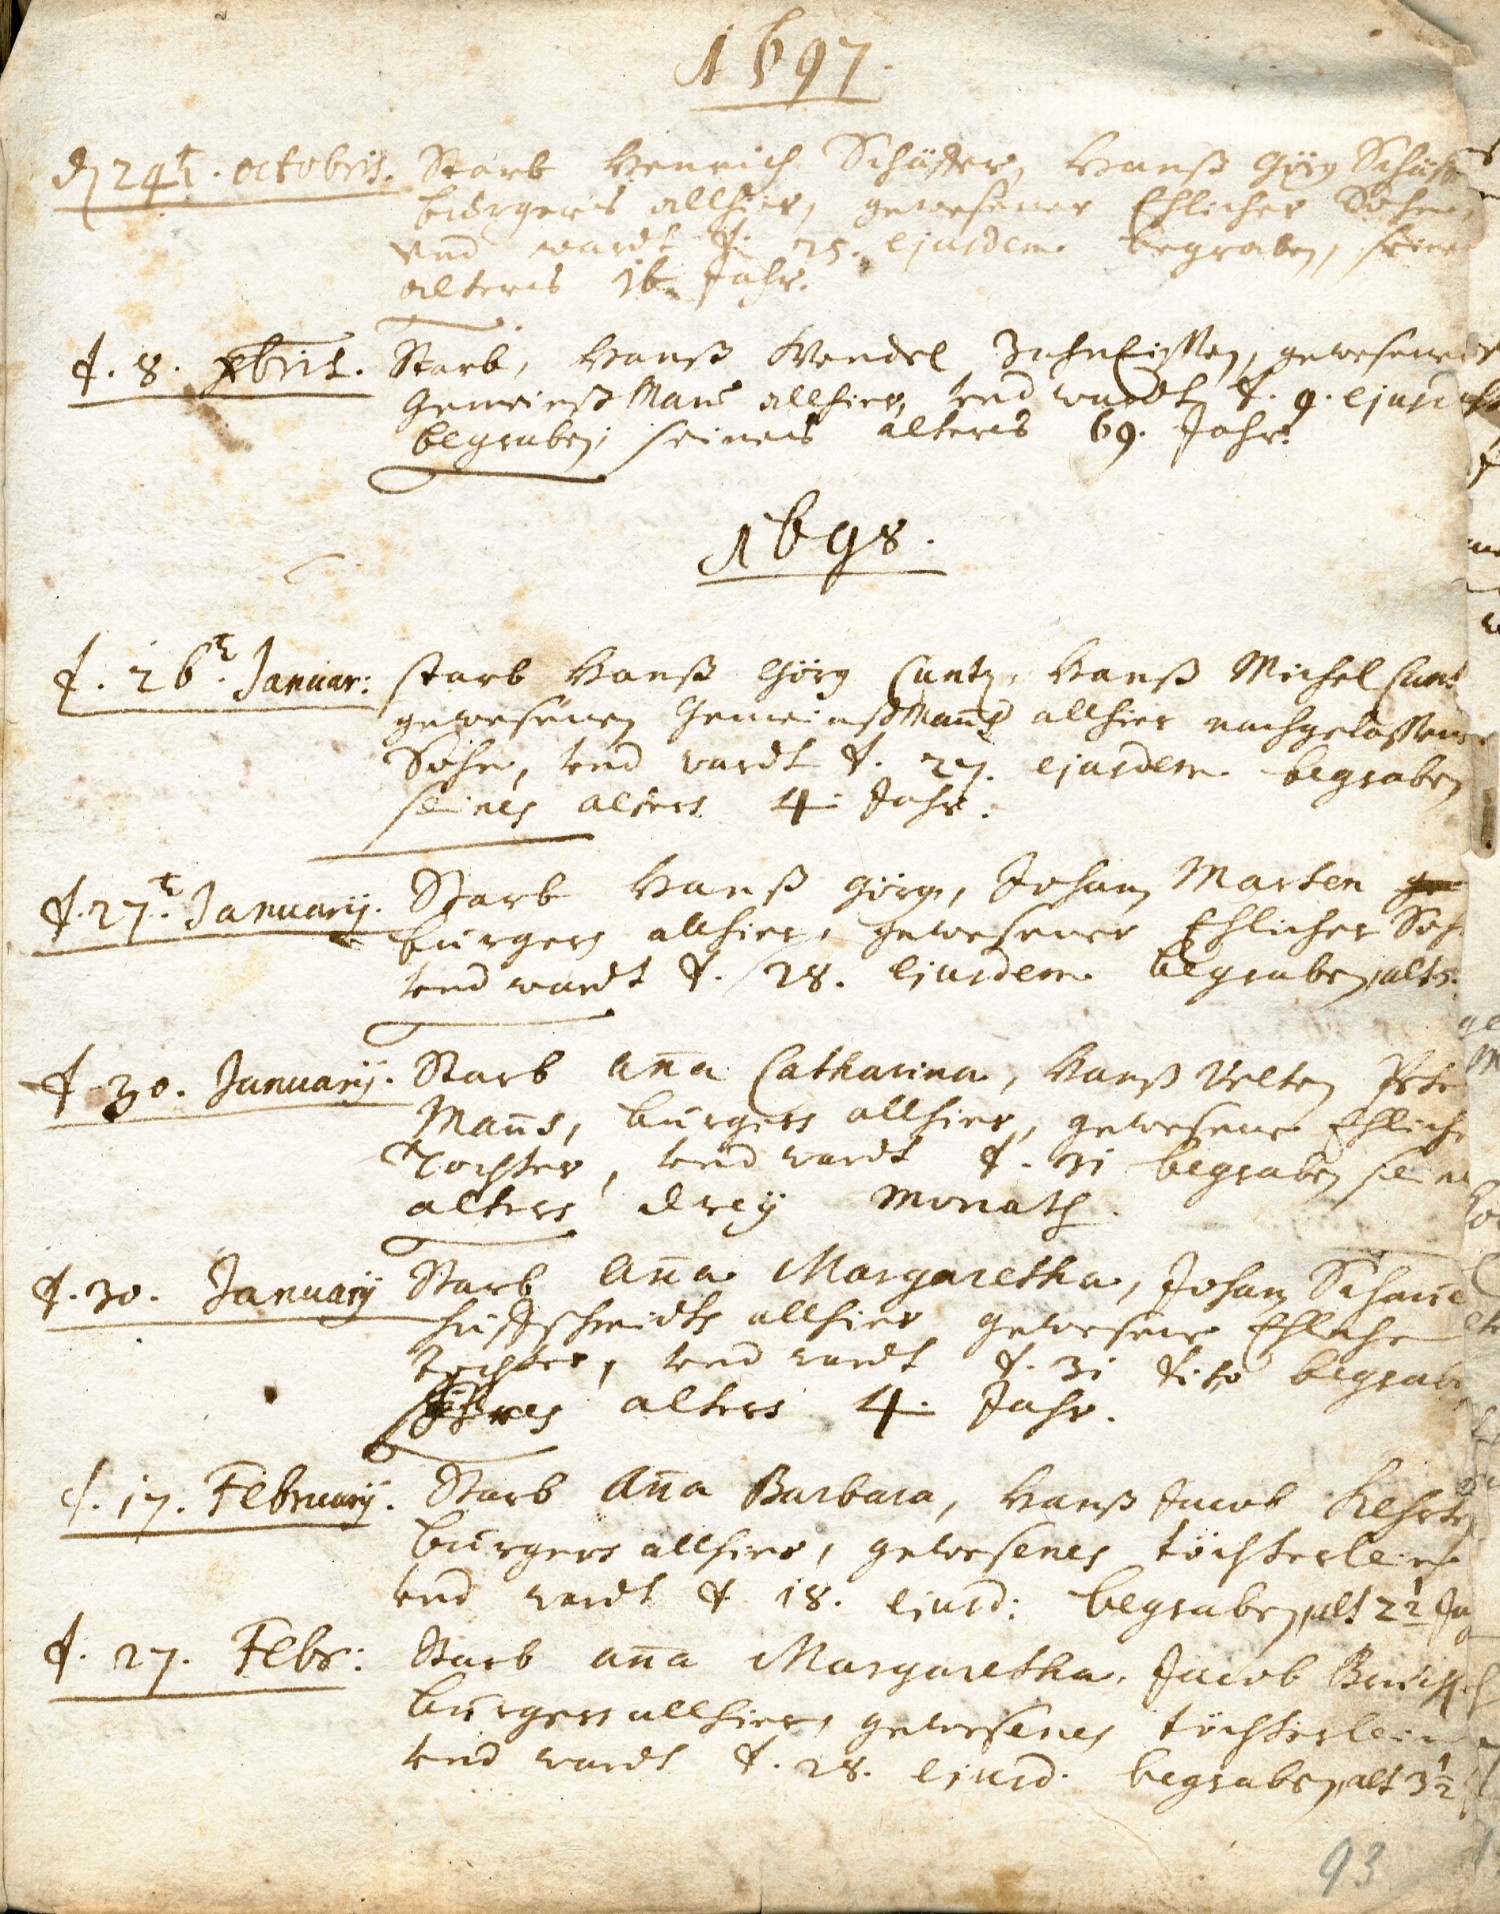 1697.
d 24t. octobris. Starb Henrich Schäffer, Hanß Görg Schäff
burgers allhier, gewesener Ehlicher Sohn,
vnd wardt d. 25. ejusdem begraben, seines
alters 16 Jahr.
d. 8. Xbris. Starb, Hanß Wendel, gewesener
Gemeinß Mann allhier, vnd wardt d. 9. ejusd
begraben, seines alters 69. Jahr.
1698.
d. 26t. Januar: starb Hanß Görg Cuntz, Hanß Michel Cunt
gewesenen Gemeinßmanns allhier nachgelassener
Sohn, vnd wardt d. 27. ejusdem begraben
seines alters 4. Jahr.
d. 27t. Januarij. Starb Hanß Görg, Johan Marten
burgers allhier, gewesener Ehlicher Soh
vnd wardt d. 28. ejusdem begraben, alt 5.
d. 30. Januarij. Starb Anna Catharina, Hanß Velten Pete
Manns, burgers allhier, gewesene Ehliche
Tochter, vnd wardt d. 31 begraben seine
alters drey Monath.
d. 30. Januarij Starb Anna Margaretha, Johan
huffschmidts allhier gewesene Ehliche
tochter, vnd wardt d. 31 dito begrab
alters 4. Jahr.
d. 17. Februarij. Starb Anna Barbara, Hanß Jacob Kehr
burgers allhier, gewesenes töchterlein
vnd wardt d. 18. ejusd: begraben, alt 2 1/2 Ja
d. 27. Febr: Starb Anna Margaretha, Jacob
burgers allhier, gewesenes töchterlein
vnd wardt d. 28. ejusd. begraben, alt 3 1/2
93